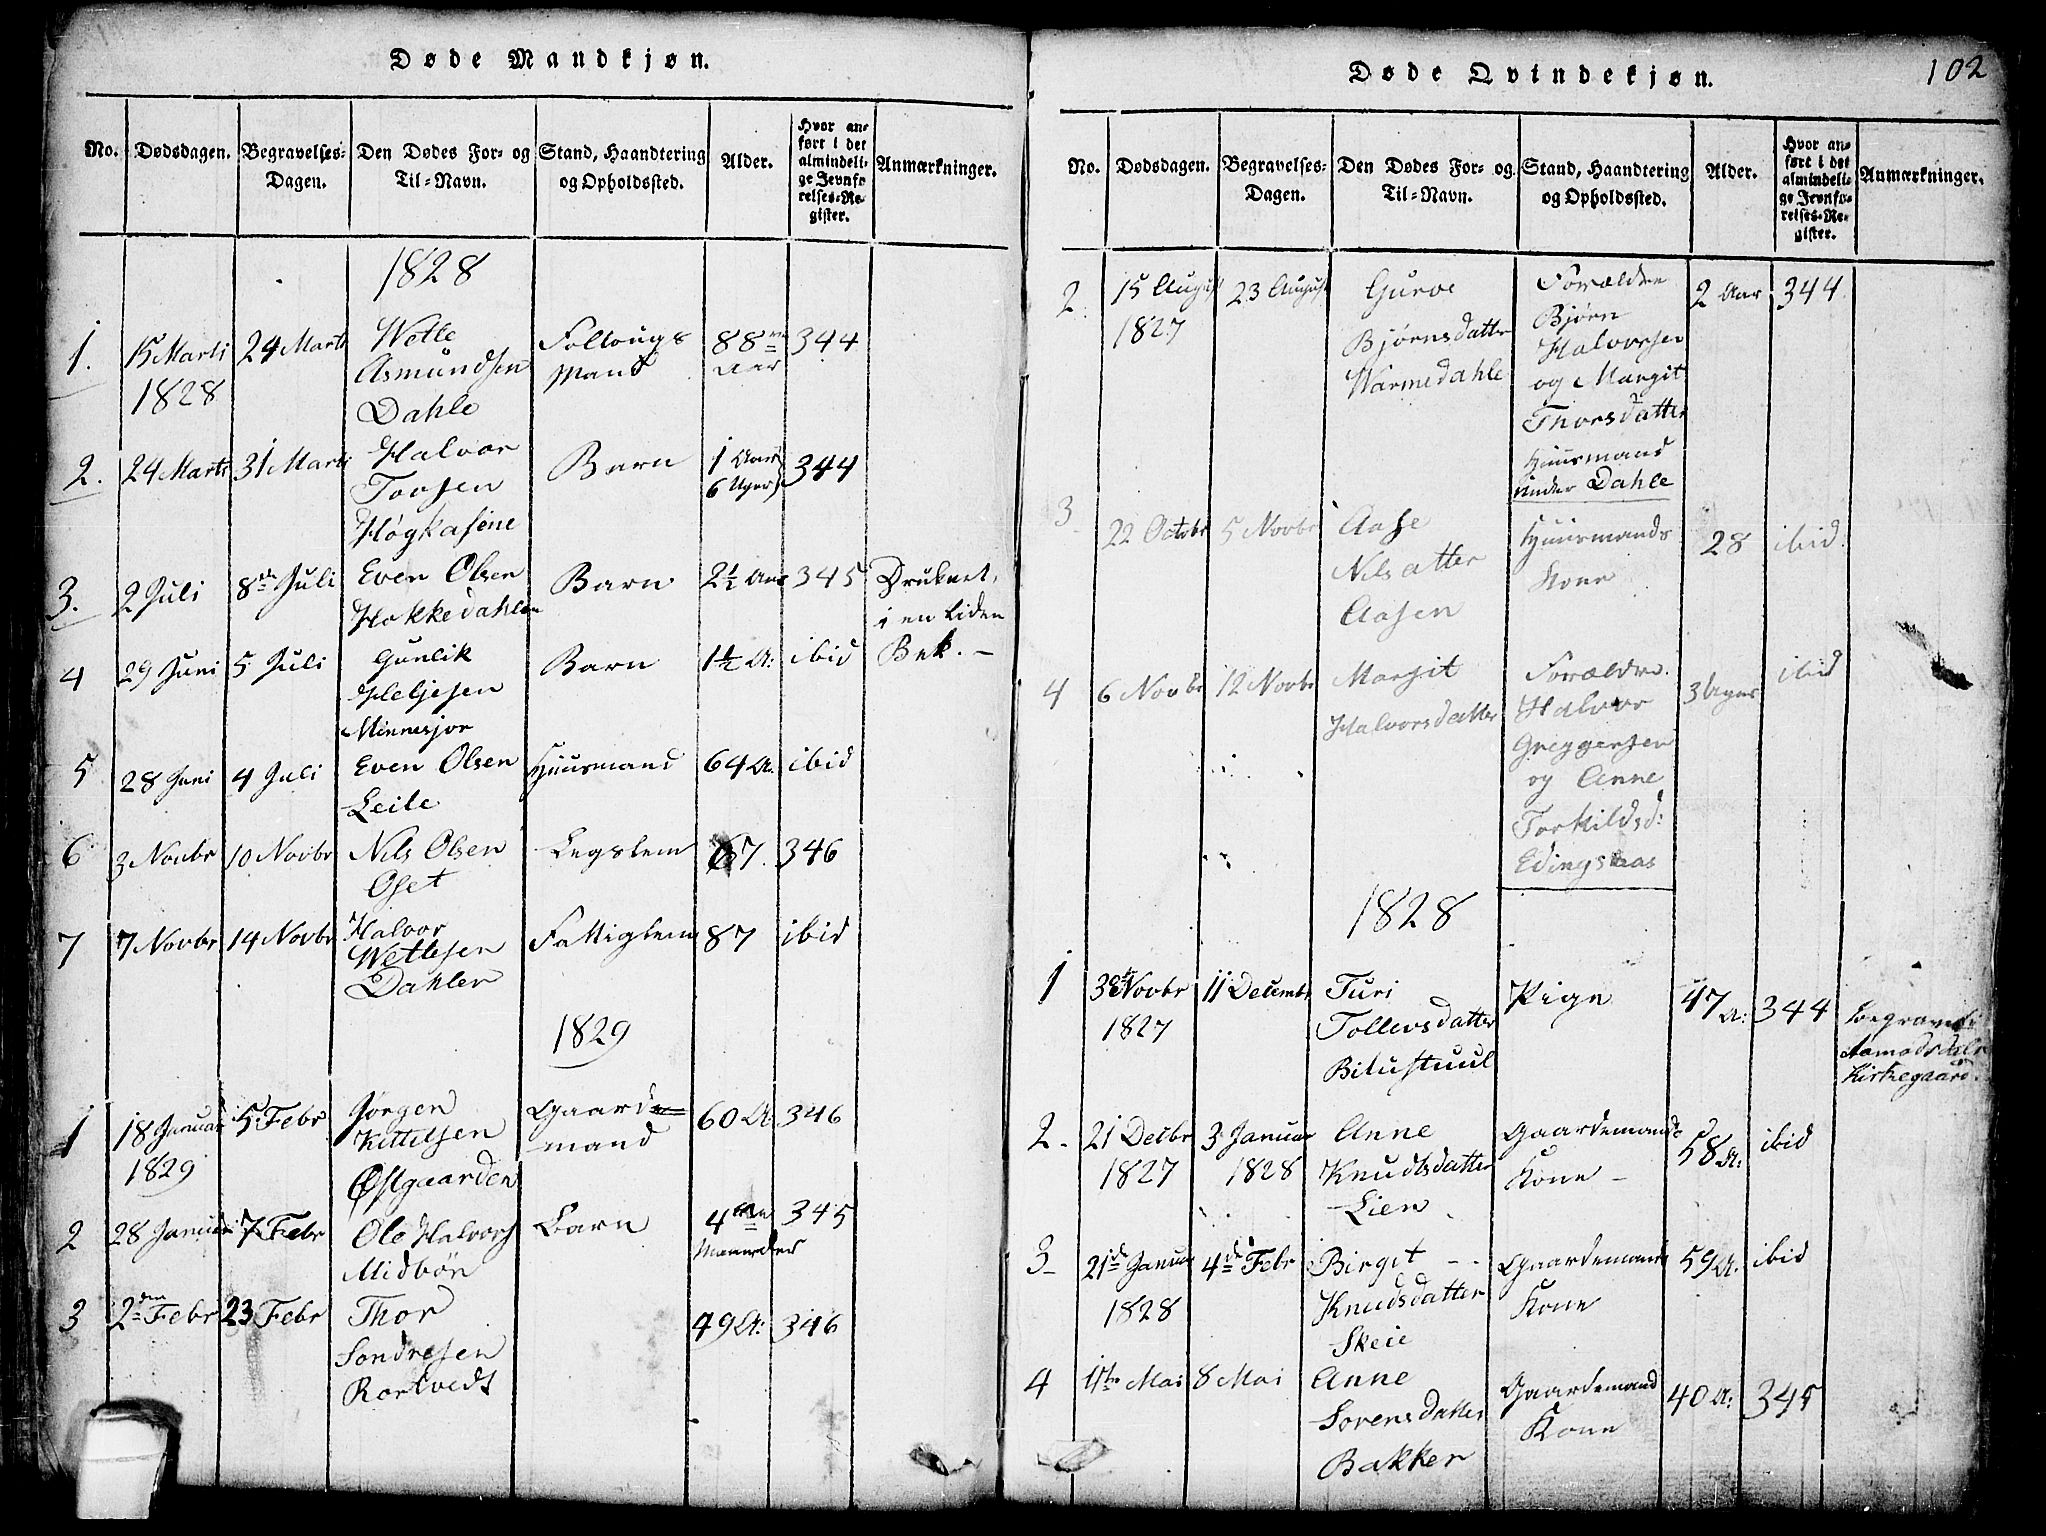 Døde Mandkjøn.
No.
Dødsdagen.
Begravelses-
Dagen.
Den Dødes For- og
Til-Navn.
Stand, Haandtering
og Opholdssted.
Alder.
Hvor an-
ført i det
almindeli-
ge Jevnfø-
relses-Re-
gister.
Anmærkninger.
1828
1.
15 Marti
1828
24 Marti
Wetle
Asmundsen
Dahle
Mand
88
Aar
344
2.
24 Marti
31 Marti
Halvor
Tovsen
Høgkasene
Barn
1 Aar
6 Uger
344
3.
2 Juli
8de Juli
Even Olsen
Hokkedahlen
Barn
2½ Aar
345
Druknet
i en liden
Bek. -
4
29 Juni
5 Juli
Gunlik
Heljesen
Minnesjor
Barn
1½ A:
ibid
5
28 Juni
4 Juli
Even Olsen
Leite
Huusmand
64 A.
ibid
6
3 Novbr
10 Novbr
Nils Olsen
Oset
Legslem
67.
346
7
7 Novbr
14 Novbr
Halvor
Wetlesen
Dahlen
Fattiglem
87
ibid
1829
1
18 Januar
1829
5 Febr
Jørgen
Kittilsen
Østgaarden
Gaarde-
mand
60 A.
346
2
28 Januar
7 Febr
Ole Halvors
Midbøn
Barn
4
Maaneder
345
3
2den Febr
23 Febr
Thor
Sondresen
Rortvedt
49 A:
346
Døde Qvindekjøn.
102
No.
Dødsdagen.
Begravelses-
Dagen.
Den Dødes For- og
Til-Navn.
Stand, Haandtering
og Opholdssted.
Alder.
Hvor an-
ført i det
almindeli-
ge Jevnfø-
relses-Re-
gister.
Anmærkninger.
2
15 August
1827
23 August
Guroe
Bjørnsdatter
Warmedahle
Forældre
Bjørn
Halvorsen
og Margit
Thorsdatter
Huusmand
under Dahle
2 Aar
344
3
22 Octobr
5 Novbr
Aase
Nilsatter
Aasen
Huusmands
Kone
28
ibid.
4
6 Novbr
12 Novbr
Margit
Halvorsdatter
Forældre.
Halvor
Greggersen
og Anne
Torkildsd:
Edingsaas
3 Uger
ibid
1828
1
30 Novbr
1827
11 Decembr
Turi
Tollevsdatter
Bitustuul
Pige
47 A:
344
begravet
Aamodsdals
Kirkegaard.
2-
21 Decbr
1827
3 Januar
1828
Anne
Knudtsdatter
Lien
Gaardemands
Kone -
58 A:
ibid
3-
21de Januar
1828
4de Febr
Birgit - -
Knudsdatter
Skeie
Gaardemands
Kone
59 A.
ibid
4
1ste Mai
8 Mai
Anne
Sorensdatter
Bakken
Gaardemand
Kone
40 A:
345